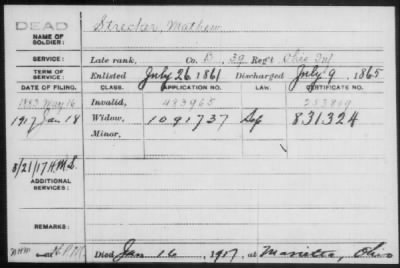 DEAD
NAME OF SOLDIER: Strecker, Mathew
SERVICE: Late rank, Co. B, 39 Reg't Ohio Inf
TERM OF SERVICE: Enlisted July 26 1861 Discharged July 9, 1865
DATE OF FILING. CLASS. APPLICATION NO. LAW. CERTIFICATE NO.
1883 May 16 Invalid, 483965
1917 Jan 18 Widow, 1091737 831324
Minor,
8/21/17 H.M.S.
ADDITIONAL SERVICES:
REMARKS:
Died Jan 16, 1917, at Marietta, Ohio